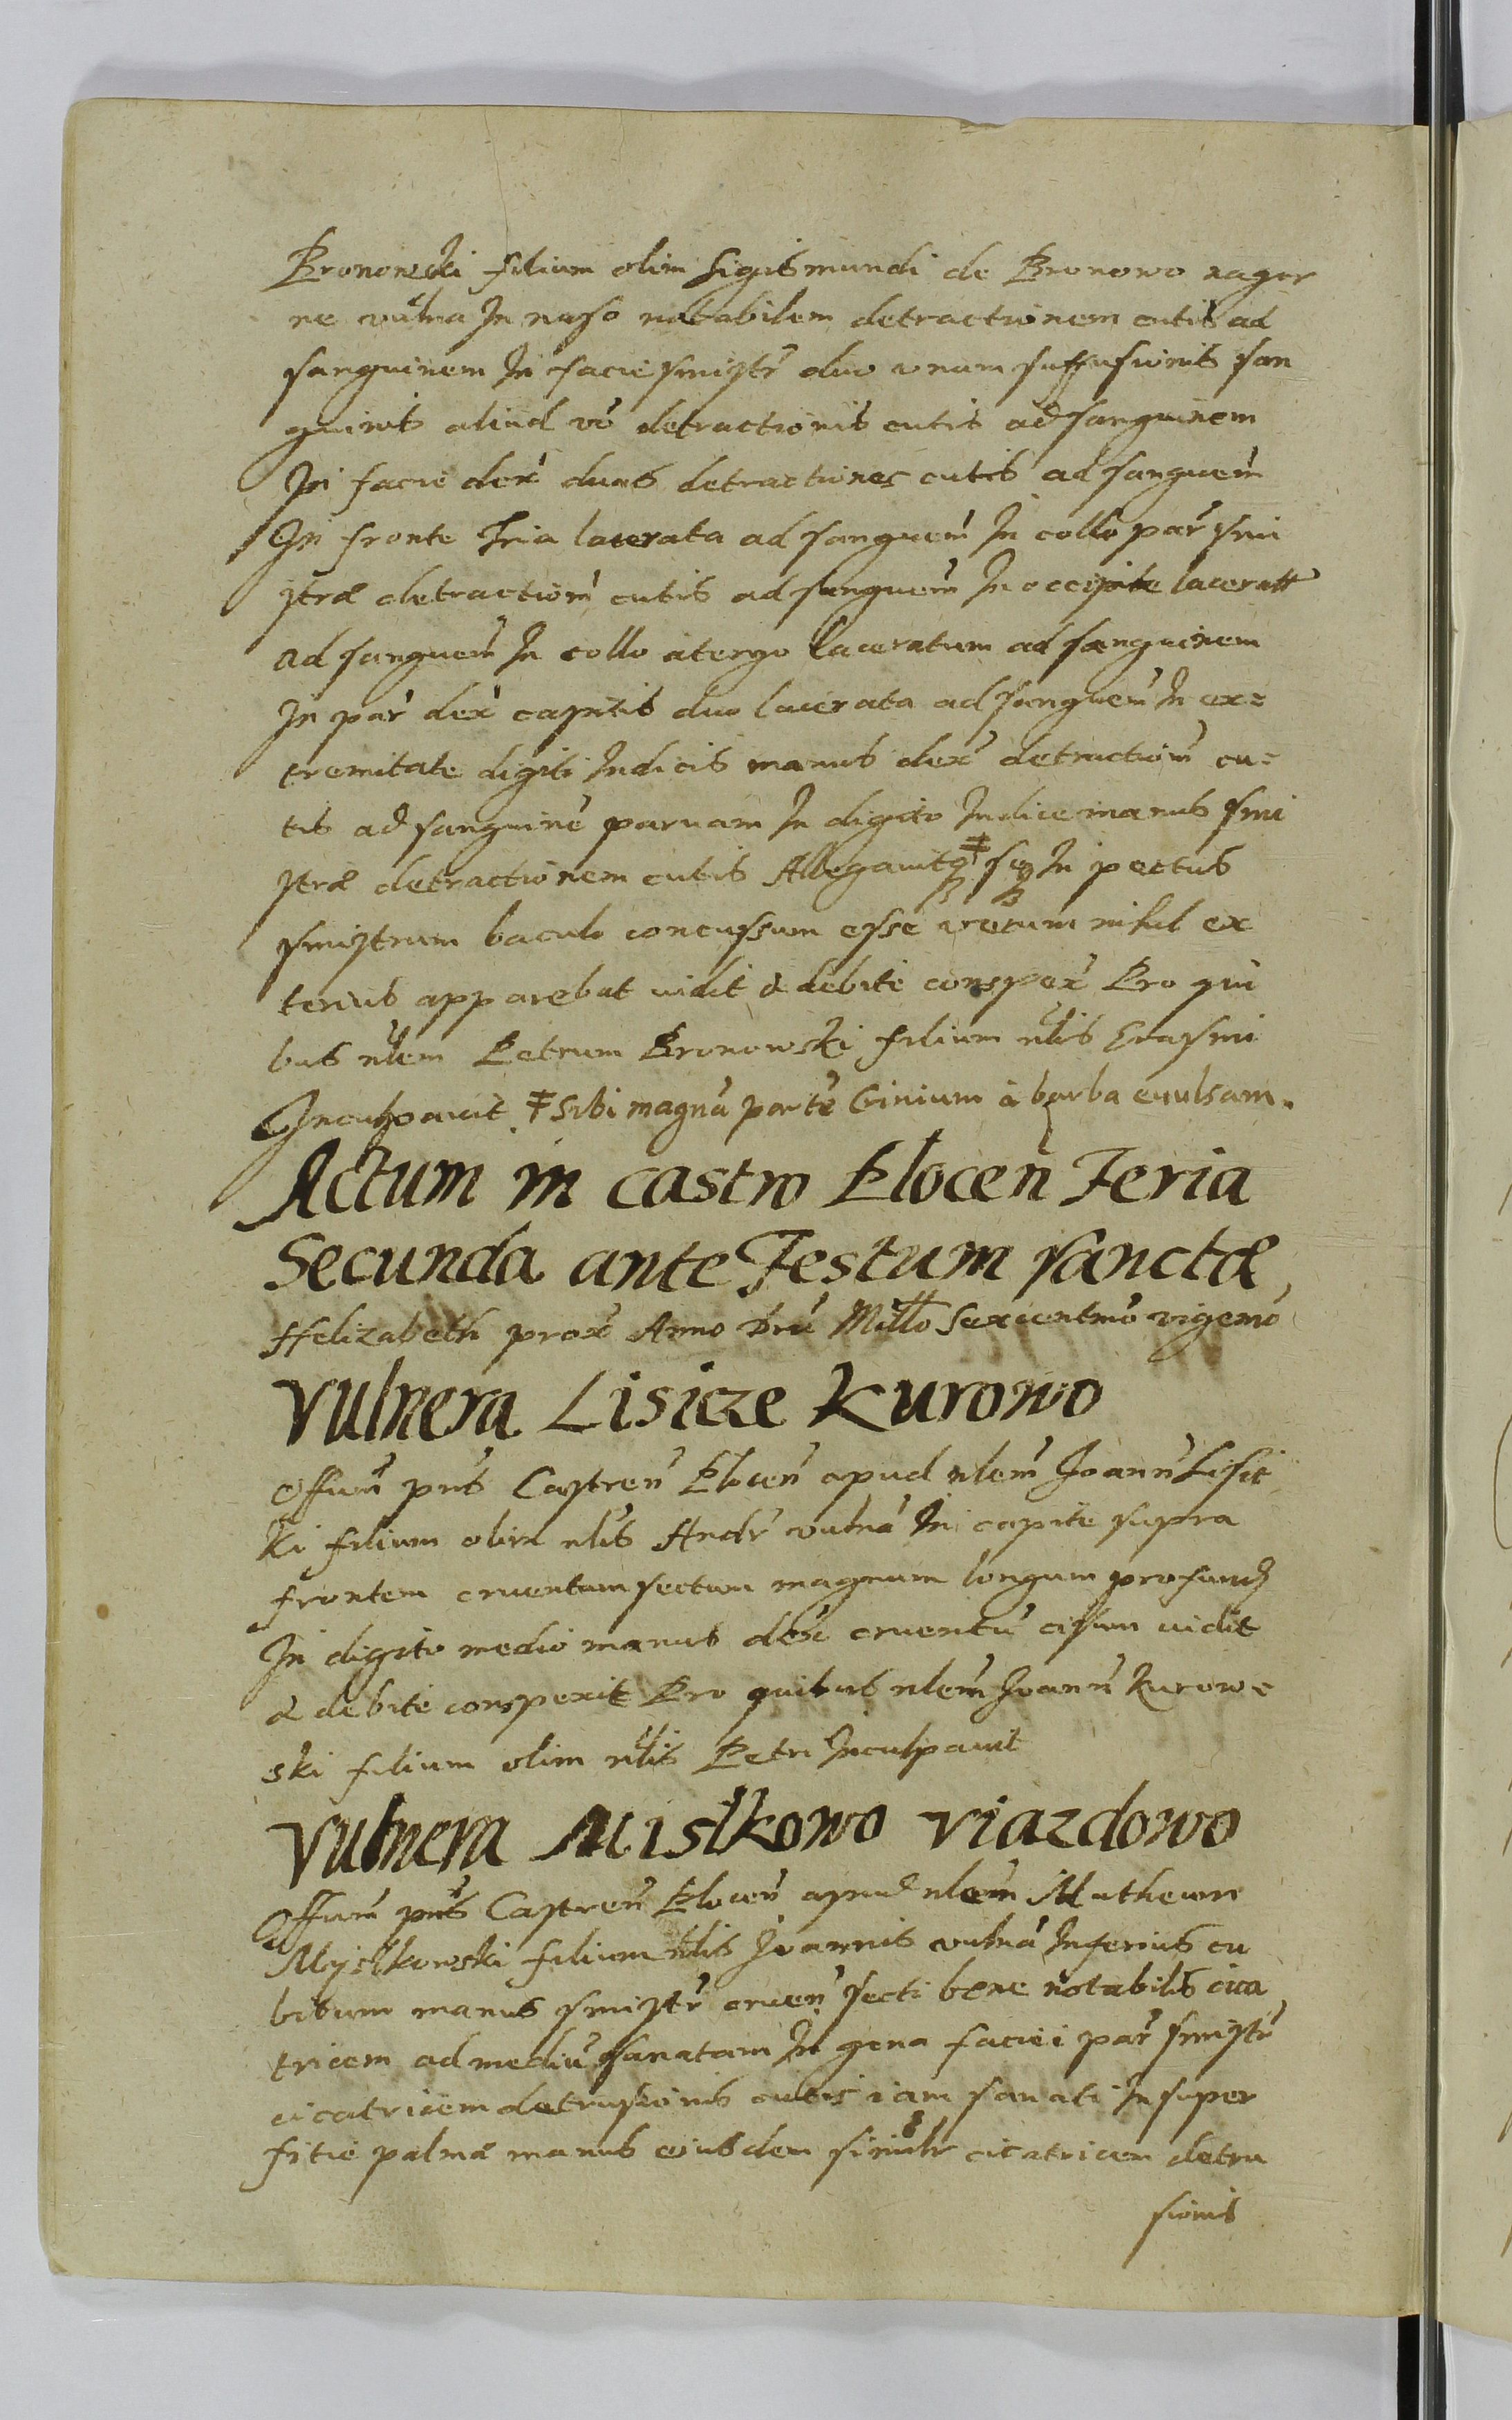 Bronowski filium olim Sigismundi de Bronowo
ne vulna In naso notabilem detractionem cutis ad
sanguinem In facie sinistr duo unum suffusionis san
guinis aliud vo detractionis cutis ad sanguinem
In facie dex duas detractiones cutis ad sanguem
In fronte tria lacerata ad sanguem In collo par sini
stræ detractiom cutis ad sanguem In occipite lacerat
ad sanguem In collo atergo laceratum ad sanguinem
In par dex capitis duo lacerata ad sanguem In ex=
tremitate digiti Indicis manus dex detractiom cu=
tis ad sanguine paruam In digito Indice manus sini
stræ detractionem cutis Allegavitq ‡ seq In pectus
sinistrum baculo concussum esse verum nihil ex
terius apparebat uidit & debite conspex Pro qui
bus nlem Petrum Bronowski filium nlis Erasmi
Inculpauit ‡ sibi magna parte Crinium à barba euulsam.
Actum in castro Plocen Feria
Secunda ante Festum sanctæ
Helizabeth prox Anno Dni Millo Sexcentmo vigemo
Vulnera Lisicze Kurowo
Offium pns Castren Plocen apud nlem Joann Lisic
ki filium olim nlis Andr vulna In capite supra
frontem cruentum sectum magnum longum profund
In digito medio manus dex cruentu cisum uidit
& debite conspexit Pro quibus nlem Joann Kurow=
ski filium olim nlis Petri Inculpauit
Vulnera Mislkowo Viazdowo
Offium pns Castren Plocen apud nlem Matheum
Myslkowski filium nlis Joannis vulna Inferius cu
bitum manus sinistr cruen secti bene notabilis cica
tricem ad mediu sanatam In gena faciei par sinistr
cicatricem detrusionis cutis iam sanati In super
fitie palmæ manus eiusdem simlr cicatricem detru
sionis